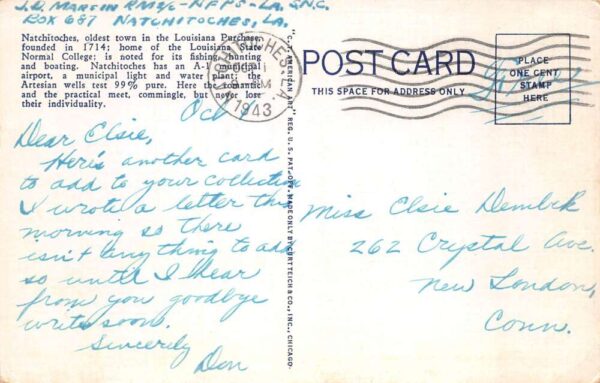 J.D. MARTIN RM2/c - NFPS-LA. S.N.C.
BOX 687 NATCHITOCHES, LA.
Natchitoches, oldest town in the Louisiana Purchase,
founded in 1714; home of the Louisiana State
Normal College: is noted for its fishing, hunting
and boating. Natchitoches has an A-1 municipal
airport, a municipal light and water plant; the
Artesian wells test 99% pure. Here the romantic
and the practical meet, commingle, but never lose
their individuality.
NATCHITOCHES, LA.
OCT
1943
Oct
Dear Elsie,
Here's another card
to add to your collection
I wrote a letter this
morning so there
isn't anything to add
so until I hear
from you goodbye
write soon.
Sincerely
Don
"C. T. AMERICAN ART" REG. U. S. PAT. OFF. MADE ONLY BY CURT TEICH & CO., INC., CHICAGO.
POST CARD
THIS SPACE FOR ADDRESS ONLY
PLACE
ONE CENT
STAMP
HERE
Miss Elsie Dembek
262 Crystal Ave.
New London,
Conn.